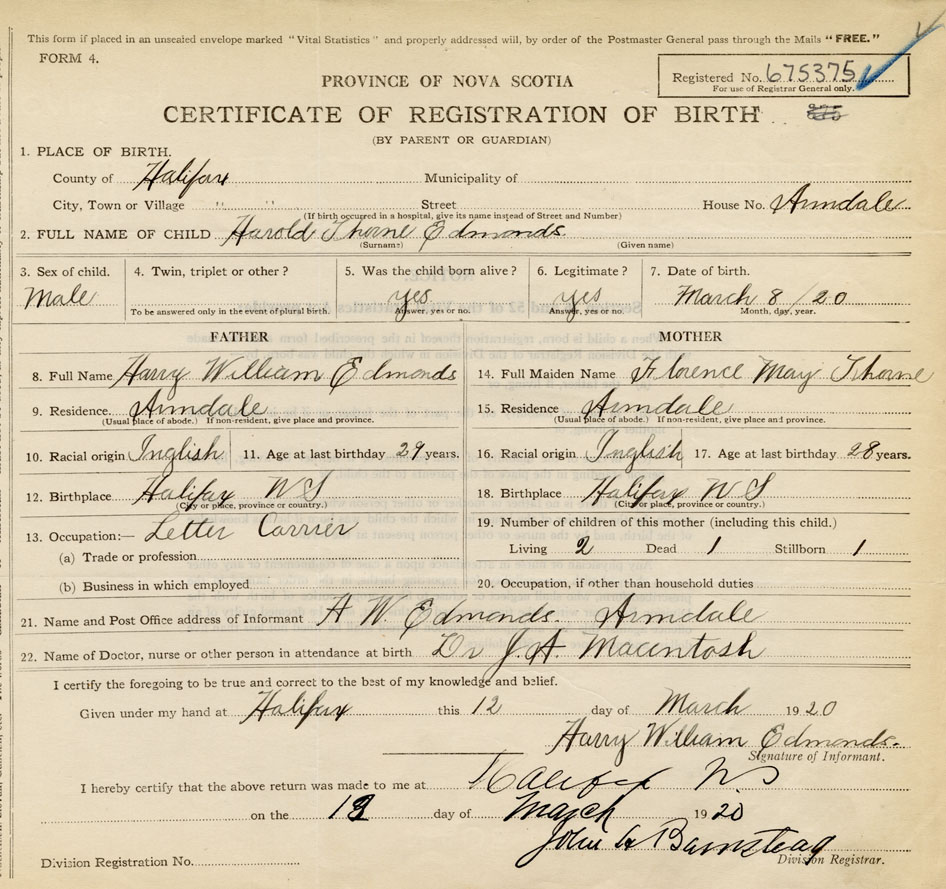 This form if placed in an unsealed envelope marked "Vital Statistics" and properly addressed will, by order of the Postmaster General pass through the Mails "FREE."
FORM 4.
PROVINCE OF NOVA SCOTIA
Registered No. 675375
For use of Registrar General only.
CERTIFICATE OF REGISTRATION OF BIRTH
(BY PARENT OR GUARDIAN)
1. PLACE OF BIRTH.
County of Halifax Municipality of
City, Town or Village " " Street House No. Armdale
(If birth occurred in a hospital, give its name instead of Street and Number)
2. FULL NAME OF CHILD Harold Thorne Edmonds.
(Surname) (Given name)
3. Sex of child. 4. Twin, triplet or other? 5. Was the child born alive? 6. Legitimate? 7. Date of birth.
Male yes yes March 8/20
To be answered only in the event of plural birth. Answer, yes or no. Answer, yes or no. Month, day, year.
FATHER MOTHER
8. Full Name Harry William Edmonds 14. Full Maiden Name Florence May Thorne
9. Residence. Armdale 15. Residence Armdale
(Usual place of abode.) If non-resident, give place and province. (Usual place of abode.) If non-resident, give place and province.
10. Racial origin Inglish 11. Age at last birthday 29 years. 16. Racial origin Inglish 17. Age at last birthday 28 years.
12. Birthplace Halifax NS 18. Birthplace Halifax NS
(City or place, province or country.) (City or place, province or country.)
13. Occupation:— Letter Carrier 19. Number of children of this mother (including this child.)
(a) Trade or profession Living 2 Dead 1 Stillborn 1
(b) Business in which employed 20. Occupation, if other than household duties
21. Name and Post Office address of Informant H W. Edmonds. Armdale
22. Name of Doctor, nurse or other person in attendance at birth Dr J. A. Macintosh
I certify the foregoing to be true and correct to the best of my knowledge and belief.
Given under my hand at Halifax this 12 day of March 1920
Harry William Edmonds.
Signature of Informant.
I hereby certify that the above return was made to me at Halifax N.S
on the day of March 1920
John A Barnstead
Division Registration No. Division Registrar.